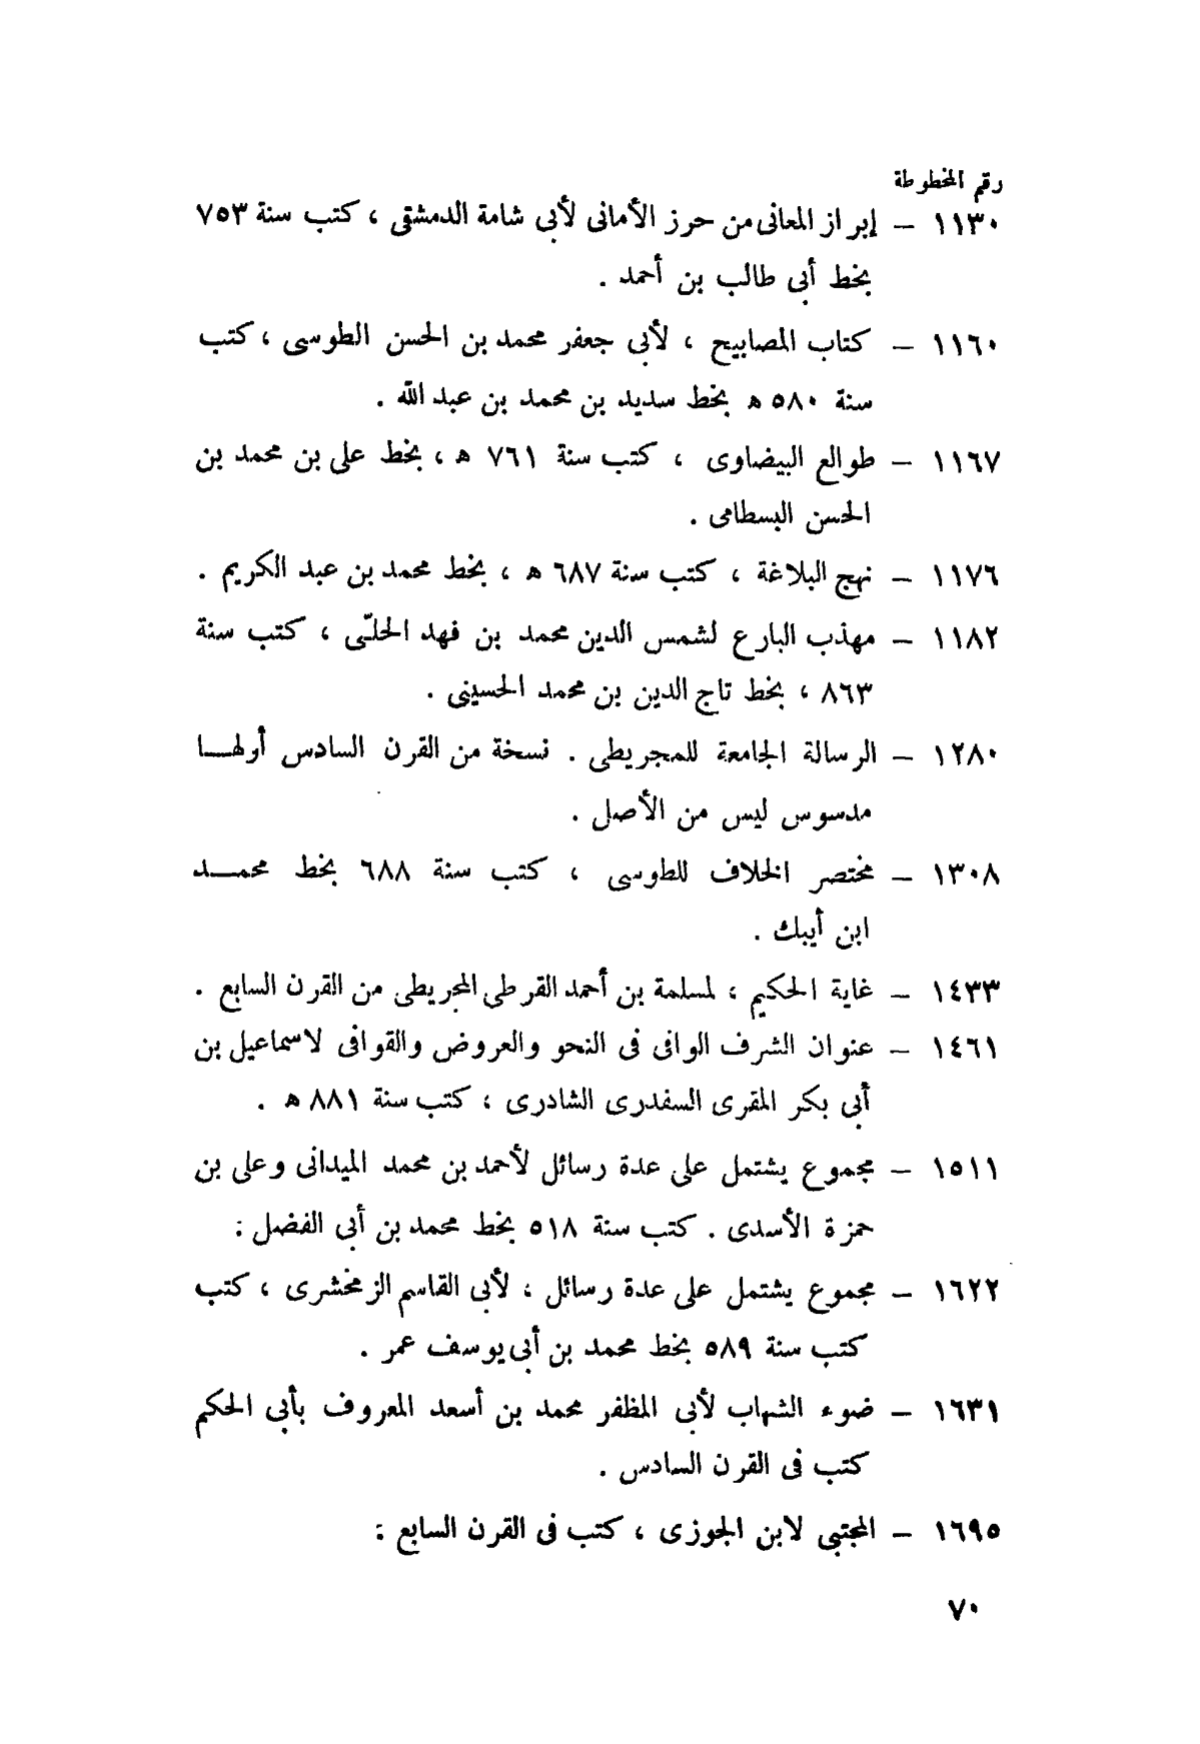 رقم المخطوطة
١١٣٠ – إبراز المعانى من حرز الأمانى لأبى شامة الدمشقى ، كتب سنة ٧٥٣
بخط أبى طالب بن أحمد .
١١٦٠ – كتاب المصابيح ، لأبى جعفر محمد بن الحسن الطوسى ، كتب
سنة ٥٨٠ ه بخط سديد بن محمد بن عبد الله .
١١٦٧ – طوالع البيضاوى ، كتب سنة ٧٦١ ه ، بخط على بن محمد بن
الحسن البسطامى .
١١٧٦ – نهج البلاغة ، كتب سنة ٦٨٧ ه ، بخط محمد بن عبد الكريم .
١١٨٢ – مهذب البارع لشمس الدين محمد بن فهد الحلّى ، كتب سنة
٨٦٣ ، بخط تاج الدين بن محمد الحسينى .
١٢٨٠ – الرسالة الجامعة للمجريطى . نسخة من القرن السادس أولهـــا
مدسوس ليس من الأصل .
١٣٠٨ – مختصر الخلاف للطوسى ، كتب سنة ٦٨٨ بخط محمـــد
ابن أيبك .
١٤٣٣ – غاية الحكيم ، لمسلمة بن أحمد القرطى المجريطى من القرن السابع .
١٤٦١ – عنوان الشرف الوافى فى النحو والعروض والقوافى لاسماعيل بن
أبى بكر المقرى السفدرى الشادرى ، كتب سنة ٨٨١ ه .
١٥١١ – مجموع يشتمل على عدة رسائل لأحمد بن محمد الميدانى وعلى بن
حمزة الأسدى . كتب سنة ٥١٨ بخط محمد بن أبى الفضل :
١٦٢٢ – مجموع يشتمل على عدة رسائل ، لأبى القاسم الزمخشرى ، كتب
كتب سنة ٥٨٩ بخط محمد بن أبى يوسف عمر .
١٦٣١ – ضوء الشهاب لأبى المظفر محمد بن أسعد المعروف بأبى الحكم
كتب فى القرن السادس .
١٦٩٥ – المجتبى لابن الجوزى ، كتب فى القرن السابع :
٧٠